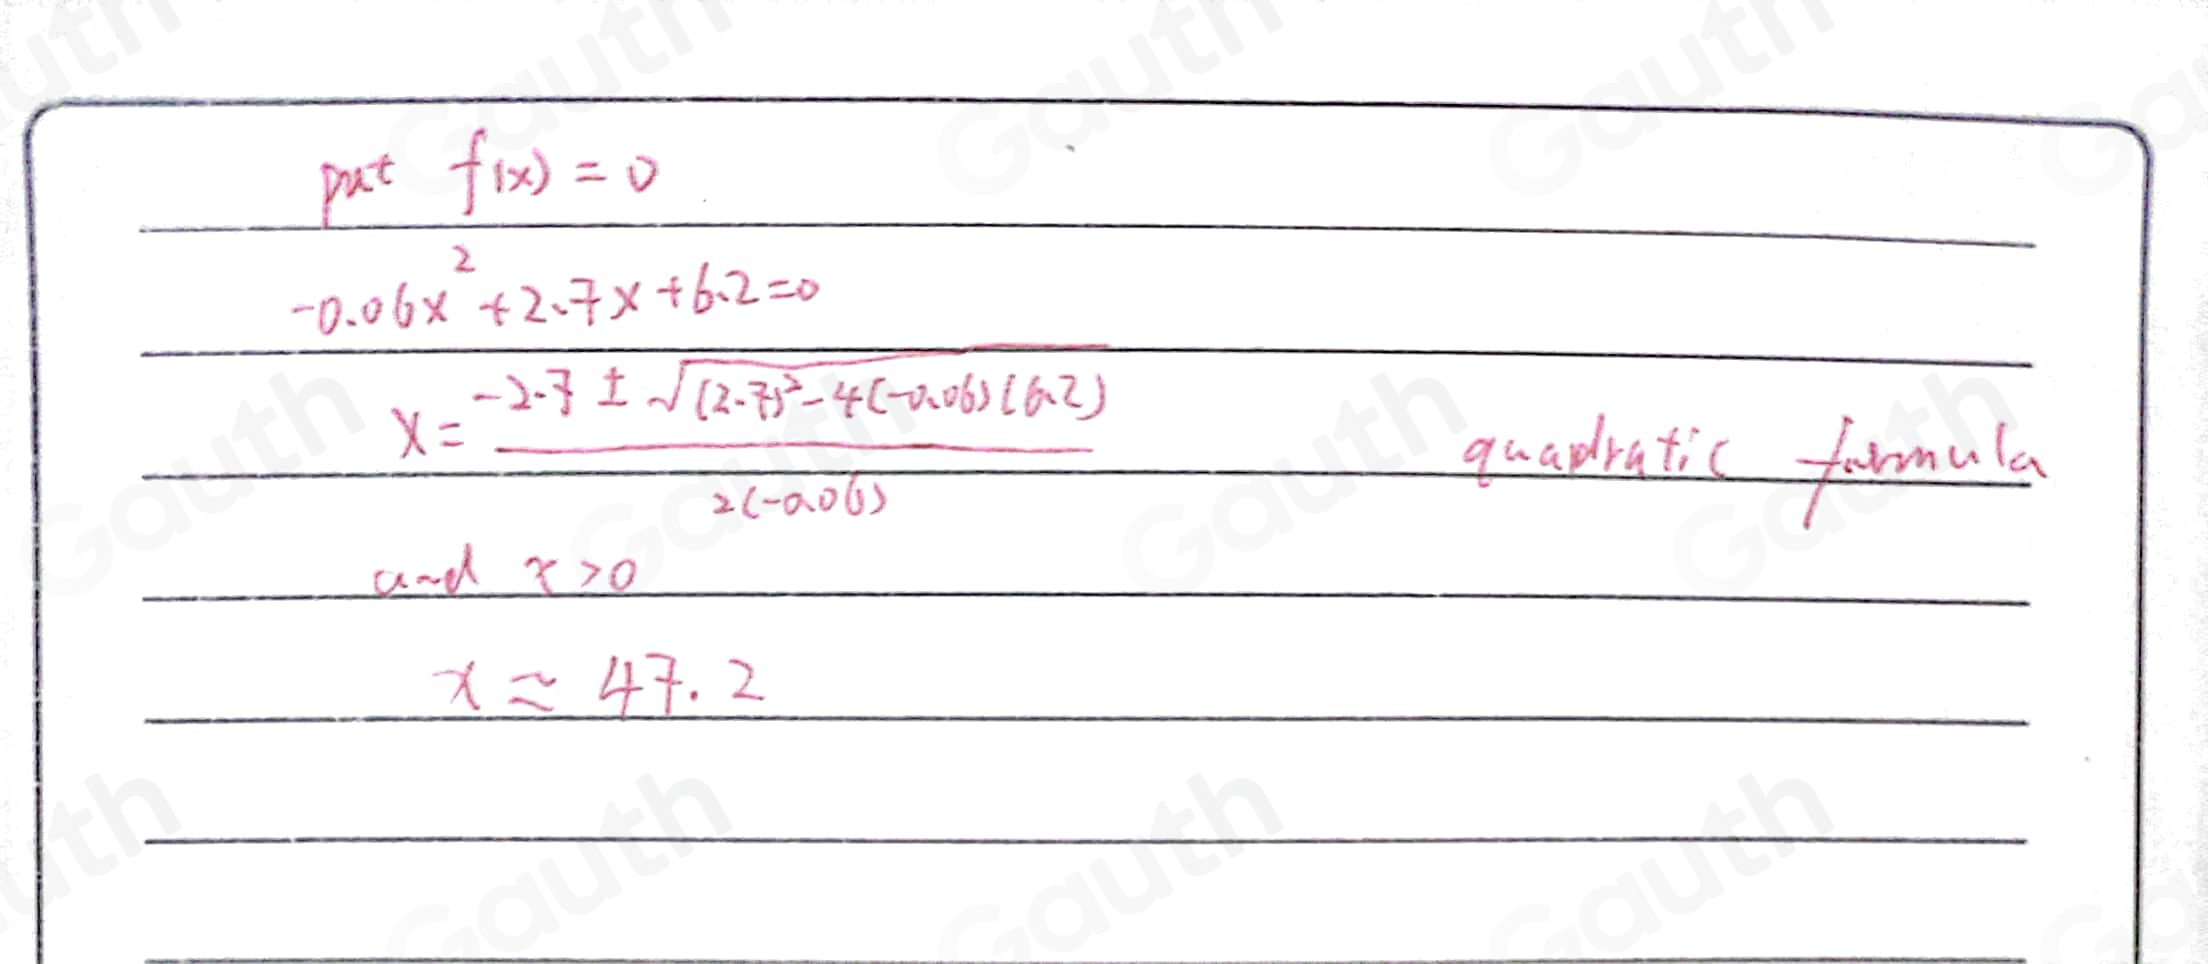 put f(x) = 0
-0.06x² + 2.7x + 6.2 = 0
x = (-2.7 ± √((2.7)² - 4(-0.06)(6.2))) / 2(-0.06) quadratic formula
and x > 0
x ≈ 47.2
Gauth